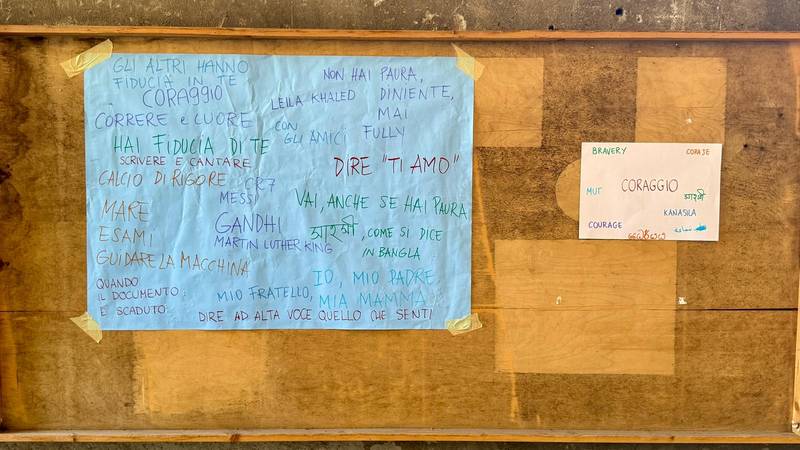 GLI ALTRI HANNO
FIDUCIA IN TE
CORAGGIO
CORRERE e CUORE
HAI FIDUCIA DI TE
SCRIVERE E CANTARE
CALCIO DI RIGORE
MARE
ESAMI
GUIDARE LA MACCHINA
QUANDO
IL DOCUMENTO
È SCADUTO
NON HAI PAURA,
DINIENTE,
MAI
LEILA KHALED
CON
GLI AMICI
FULLY
DIRE "TI AMO"
CR7
MESSI
GANDHI
MARTIN LUTHER KING
VAI, ANCHE SE HAI PAURA
, COME SI DICE
IN BANGLA
IO, MIO PADRE
MIO FRATELLO,
MIA MAMMA
DIRE AD ALTA VOCE QUELLO CHE SENTI
BRAVERY
CORAJE
MUT
CORAGGIO
KANASILA
COURAGE